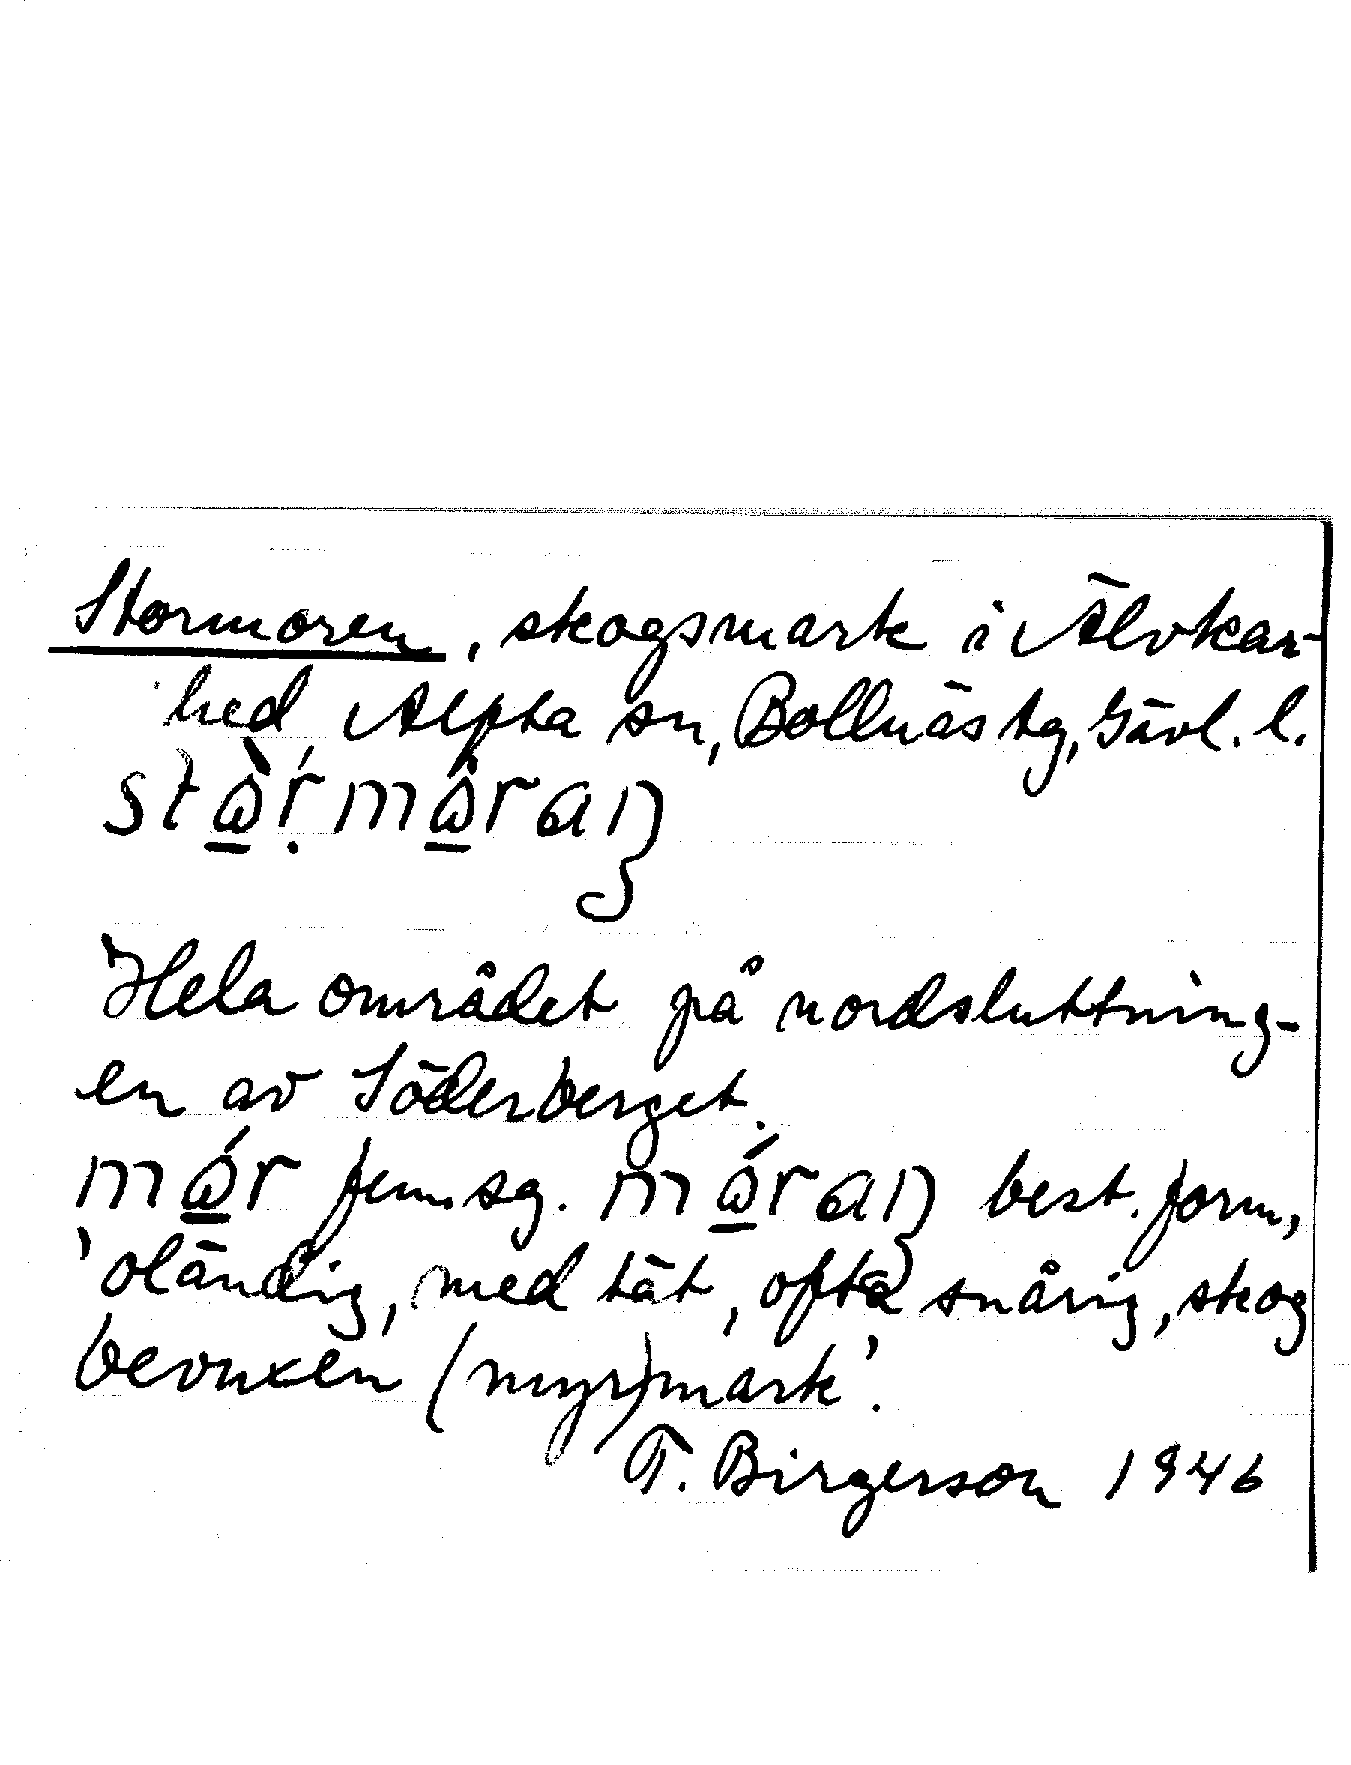 Stormoren, skogsmark i Älvkar-
hed, Alfta sn, Bollnäs tg, Gävl. l.
stὼ̲ṛmω̲̂raŋ
Hela området på nordsluttning-
en av Söderberget.
mώ̲r fem. sg. mώ̲raŋ best. form,
'oländig, med tät, ofta snårig, skog
bevuxen (myr)mark'.
T. Birgerson 1946